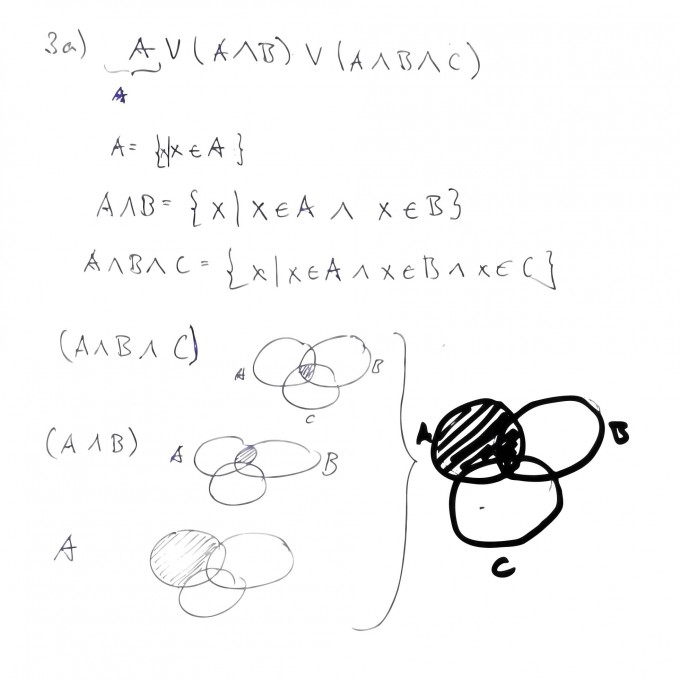 3a) A V (A ∧ B) V (A ∧ B ∧ C)
A
A = {x|x ∈ A}
A∧B = {x | x ∈ A ∧ x ∈ B}
A∧B∧C = {x | x ∈ A ∧ x ∈ B ∧ x ∈ C}
(A∧B∧C)
A B
C
(A∧B) A B
A
A B
C